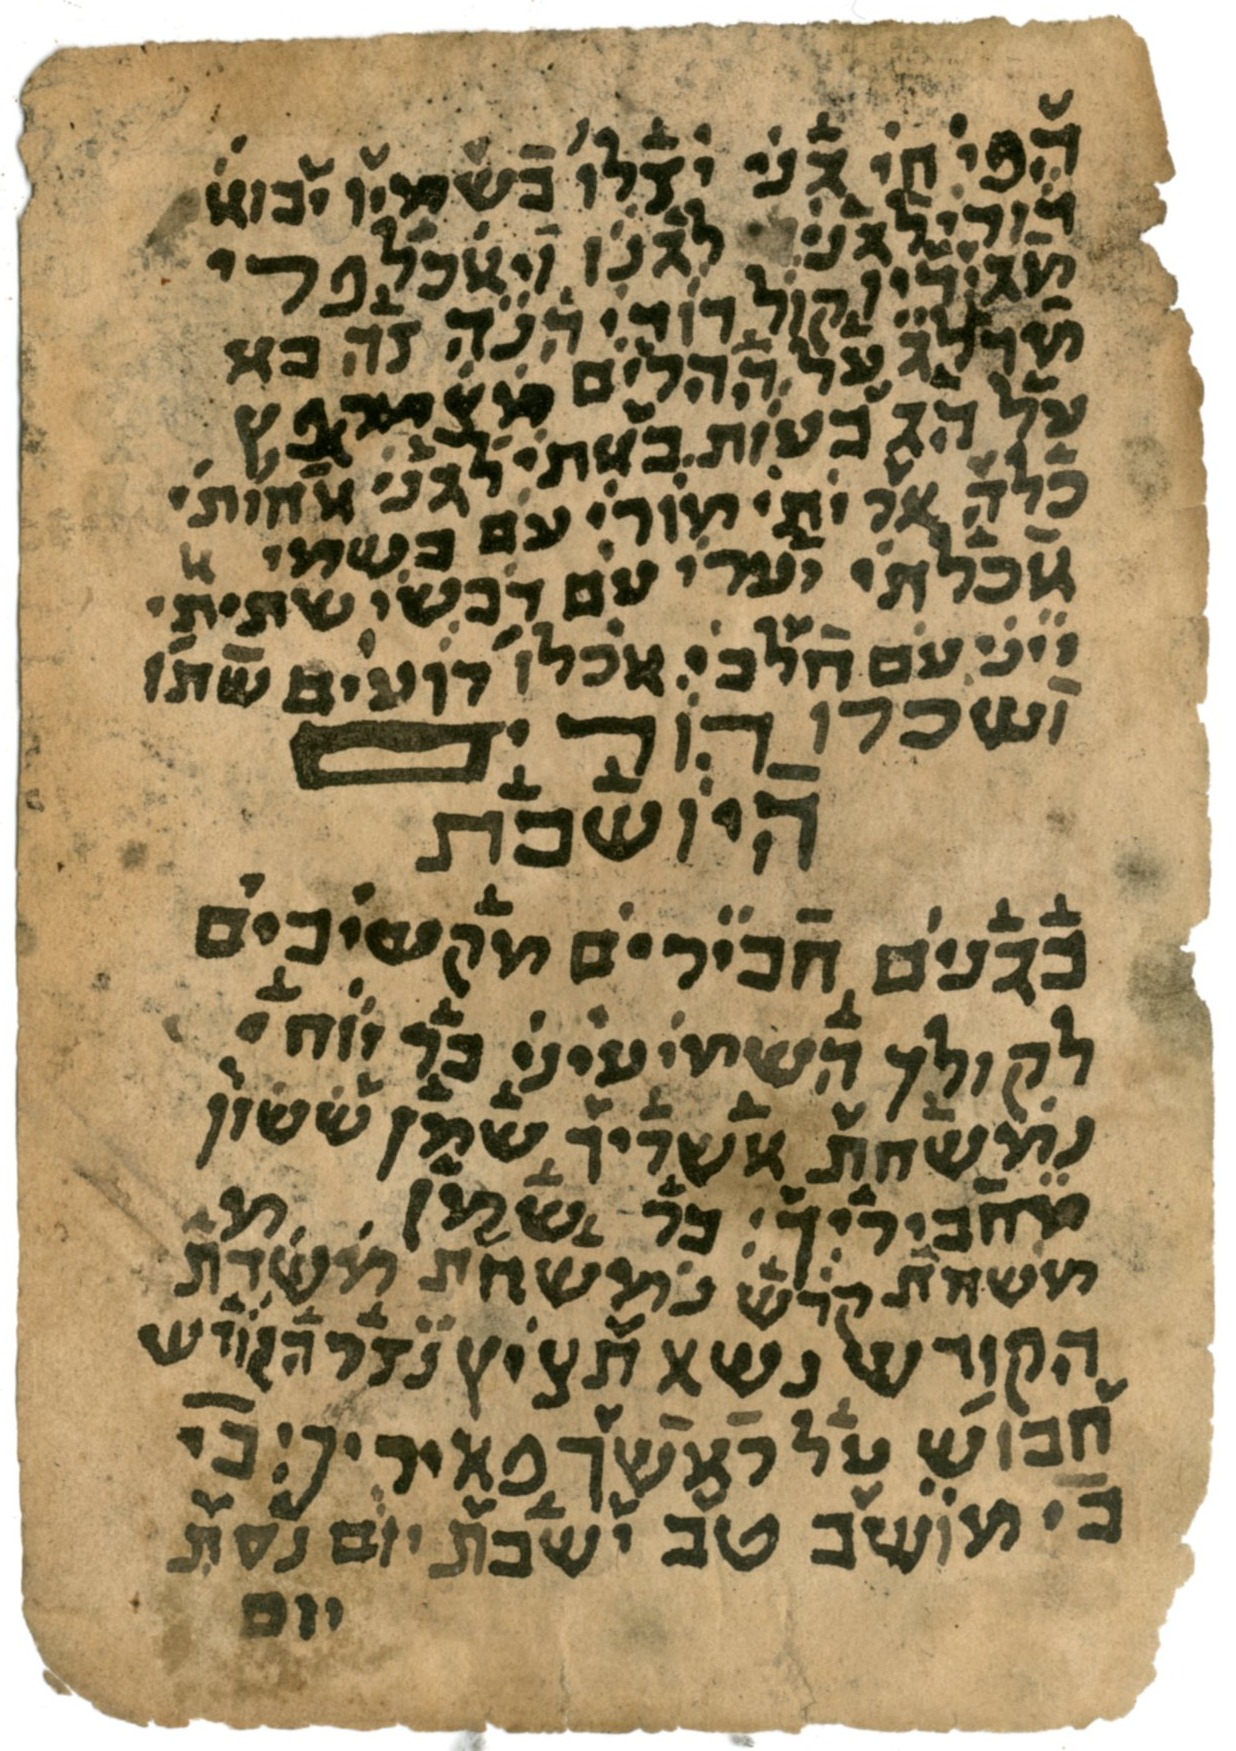 הפיחי גני יצלו בשמיו יבוא
דודי לגני לגנו ויאכל פרי
מגודיו קול דודי הנה זה בא
מדלג על ההלים מצ מקפץ
על הג בעות באתי לגני אחותי
כלה אר יתי מורי עם בשמי א
אכלתי יערי עם דבשי שתיתי
ייני עם חלבי אכלו רועים שתו
ושכרו הודים
היושבת
בגנים חבירים מקשיבים
לקולך השמיעיני כל יוחי
נמשחת אשריך שמן ששון
מחביריך כל שמן מ
משחת קדש נמשחת משדת
הקודש נשא תציץ נזר הקודש
חבוש על ראשך פאיריך כי
כי מושב טב ישבת יום נסת
יום